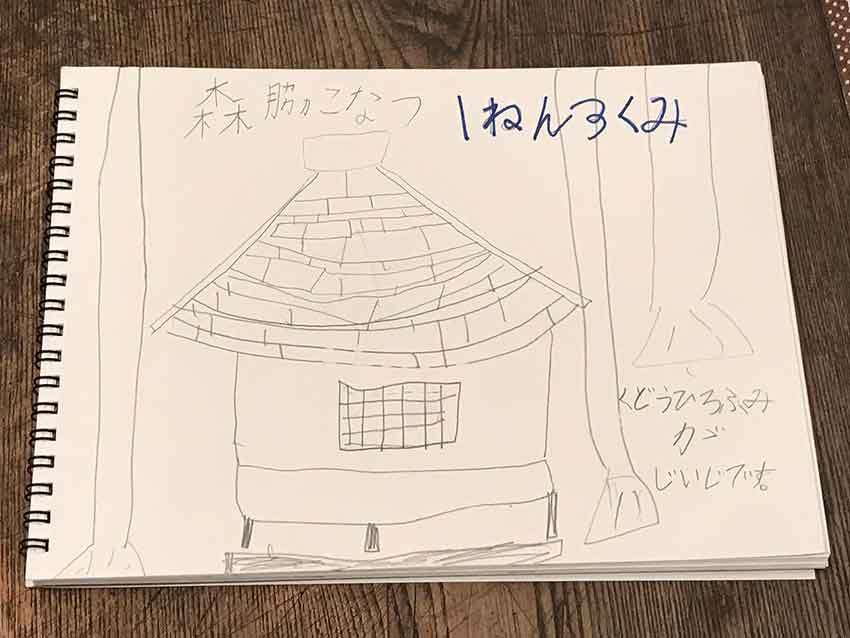 森脇こなつ
1ねん3くみ
くどうひろふみ
が
じいじです。